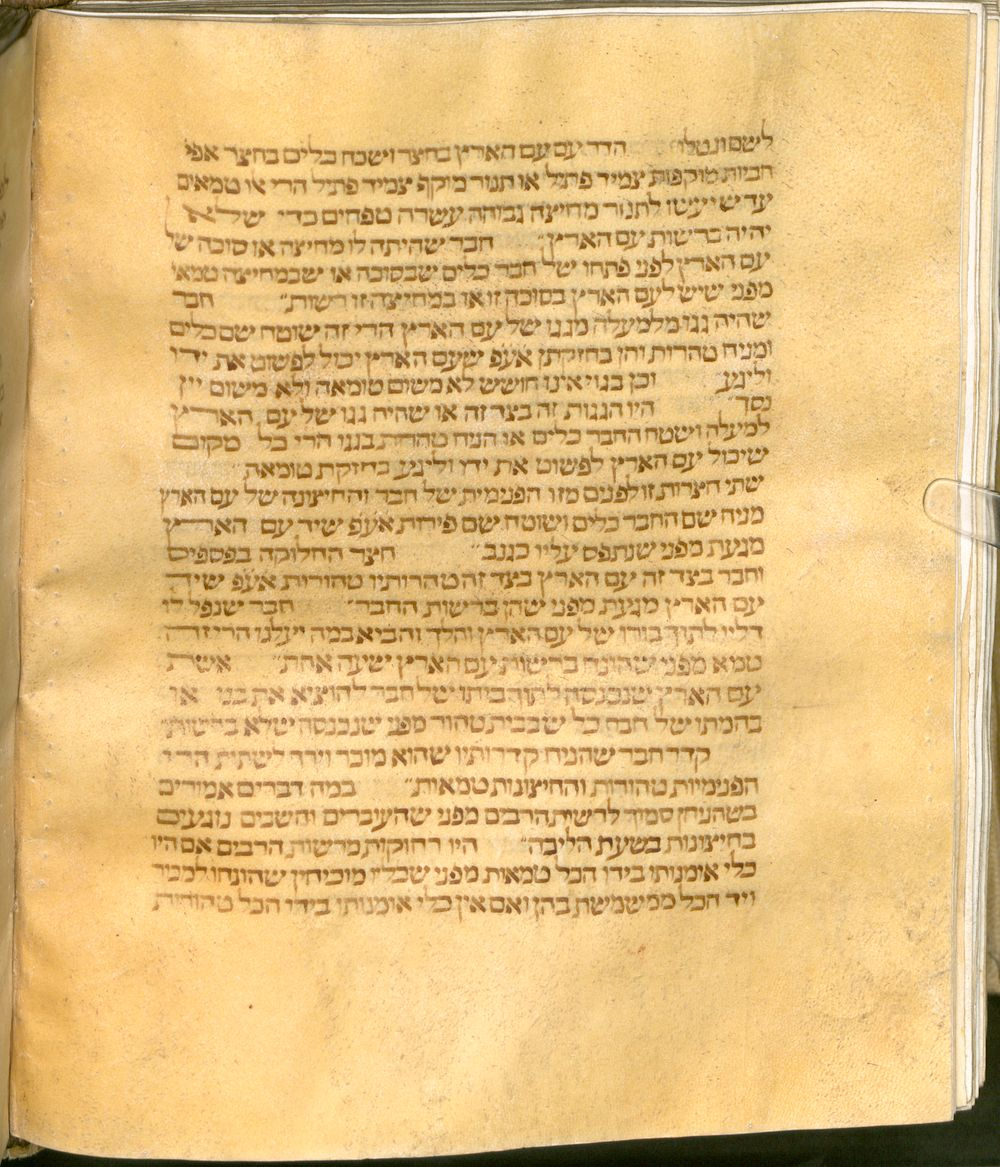 לישם ונטלו הדר עם עם הארץ בחצר וישכח כלים בחצר אפי
חביות מוקפות צמיד פתיל או תנור מוקף צמיד פתיל הרי או טמאים
עד שיעשו לתנור מחיצה גבוהה עשרה טפחים כדי שלא
יהיה ברשות עם הארץ״ חבר שהיתה לו מחיצה או סוכה של
עם הארץ לפני פתחו של חבר כלים שבסוכה או שבמחיצה טמאי
מפני שיש לעם הארץ בסוכה זו או במחיצה זו רשות״ חבר
שהיה גגו מלמעלה מגגו של עם הארץ הרי זה שוטח שם כלים
ומניח טהרות והן בחזקתן אעפ שעם הארץ יכול לפשוט את ידו
וליגע וכן בגוי אינו חושש לא משום טומאה ולא משום יין
נסך״ היו הגגות זה בצד זה או שהיה גגו של עם הארץ
למעלה ושטח החבר כלים או הניח טהרות בגגו הרי כל מקום
שיכול עם הארץ לפשוט את ידו וליגע בחזקת טומאה
שתי חצרות זו לפנים מזו הפנימית של חבר והחיצונה של עם הארץ
מניח שם החבר כלים ושוטח שם פירות אעפ שיד עם הארץ
מגעת מפני שנתפס עליו כגנב״ חצר החלוקה בפספיס
וחבר בצד זה עם הארץ בצד זה טהרותיו טהורות אעפ שיד
עם הארץ מגעת מפני שהן ברשות החבר״ חבר שנפל לו
דליו לתוך בורו של עם הארץ והלך והביא במה יעלנו הרי זה
טמא מפני שהונח ברשות עם הארץ שעה אחת״ אשת
עם הארץ שנכנסה לתוך ביתו של חבר להוציא את בנו או
בהמתו של חבר כל שבבית טהור מפני שנכנסה שלא ברשות״
קדר חבר שהניח קדרותיו שהוא מוכר וירד לשתות הרי
הפנימיות טהורות והחיצונות טמאות״ במה דברים אמורים
בשהניחן סמוך לרשות הרבים מפני שהעוברים והשבים נוגעים
בחיצונות בשעת הליכה״ היו רחוקות מרשות הרבים אם היו
כלי אומנותו בידו הכל טמאות מפני שכליו מוכיחין שהונחו למכור
ויד הכל ממשמשת בהן ואם אין כלי אומנותו בידו הכל טהורות